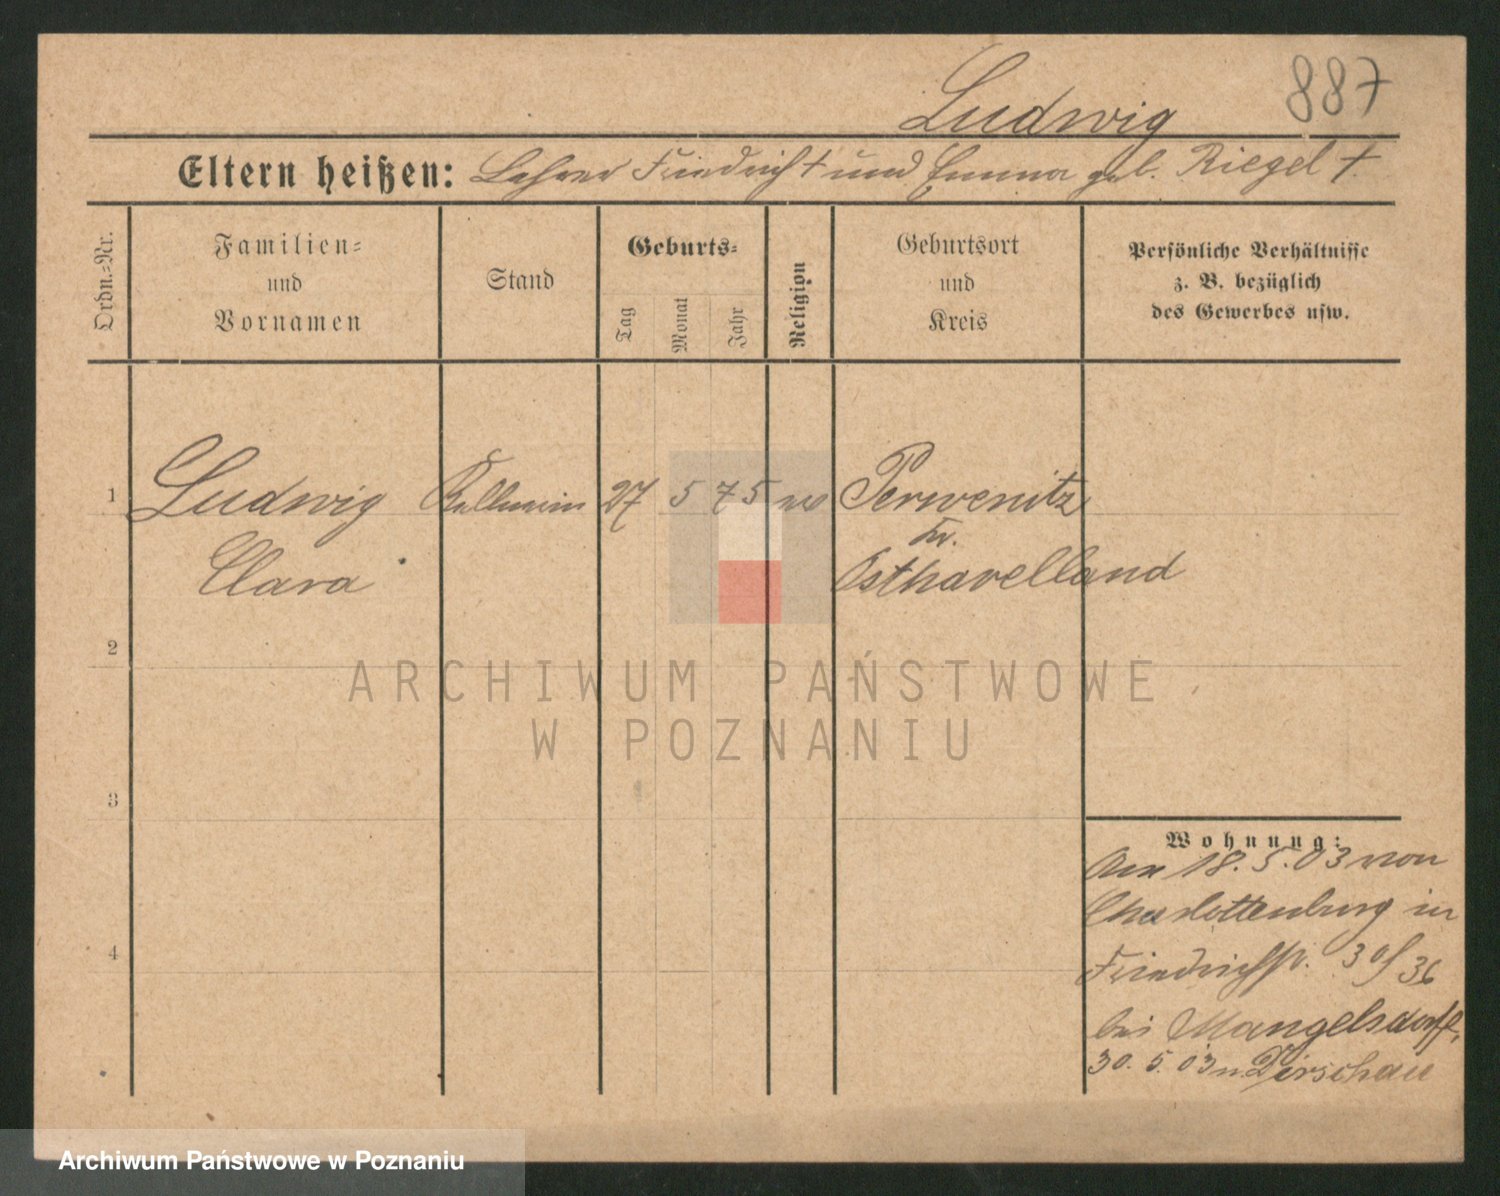 Ludwig 887
Eltern heißen: Lehrer Friedrich † und Emma geb. Riegel †.
Ordn.=Nr.
Familien=
und
Vornamen
Stand
Geburts=
Tag
Monat
Jahr
Religion
Geburtsort
und
Kreis
Persönliche Verhältnisse
z. B. bezüglich
des Gewerbes usw.
1 Ludwig Kellnerin 27 5 75 ev Perwenitz
Kr.
Clara Osthavelland
2
3
4
Wohnung:
18. 5. 03 von
Charlottenburg in
Friedrichstr. 30/36
bei Mangelsdorff,
30. 5. 03 n. Dirschau
ARCHIWUM PAŃSTWOWE
W POZNANIU
Archiwum Państwowe w Poznaniu